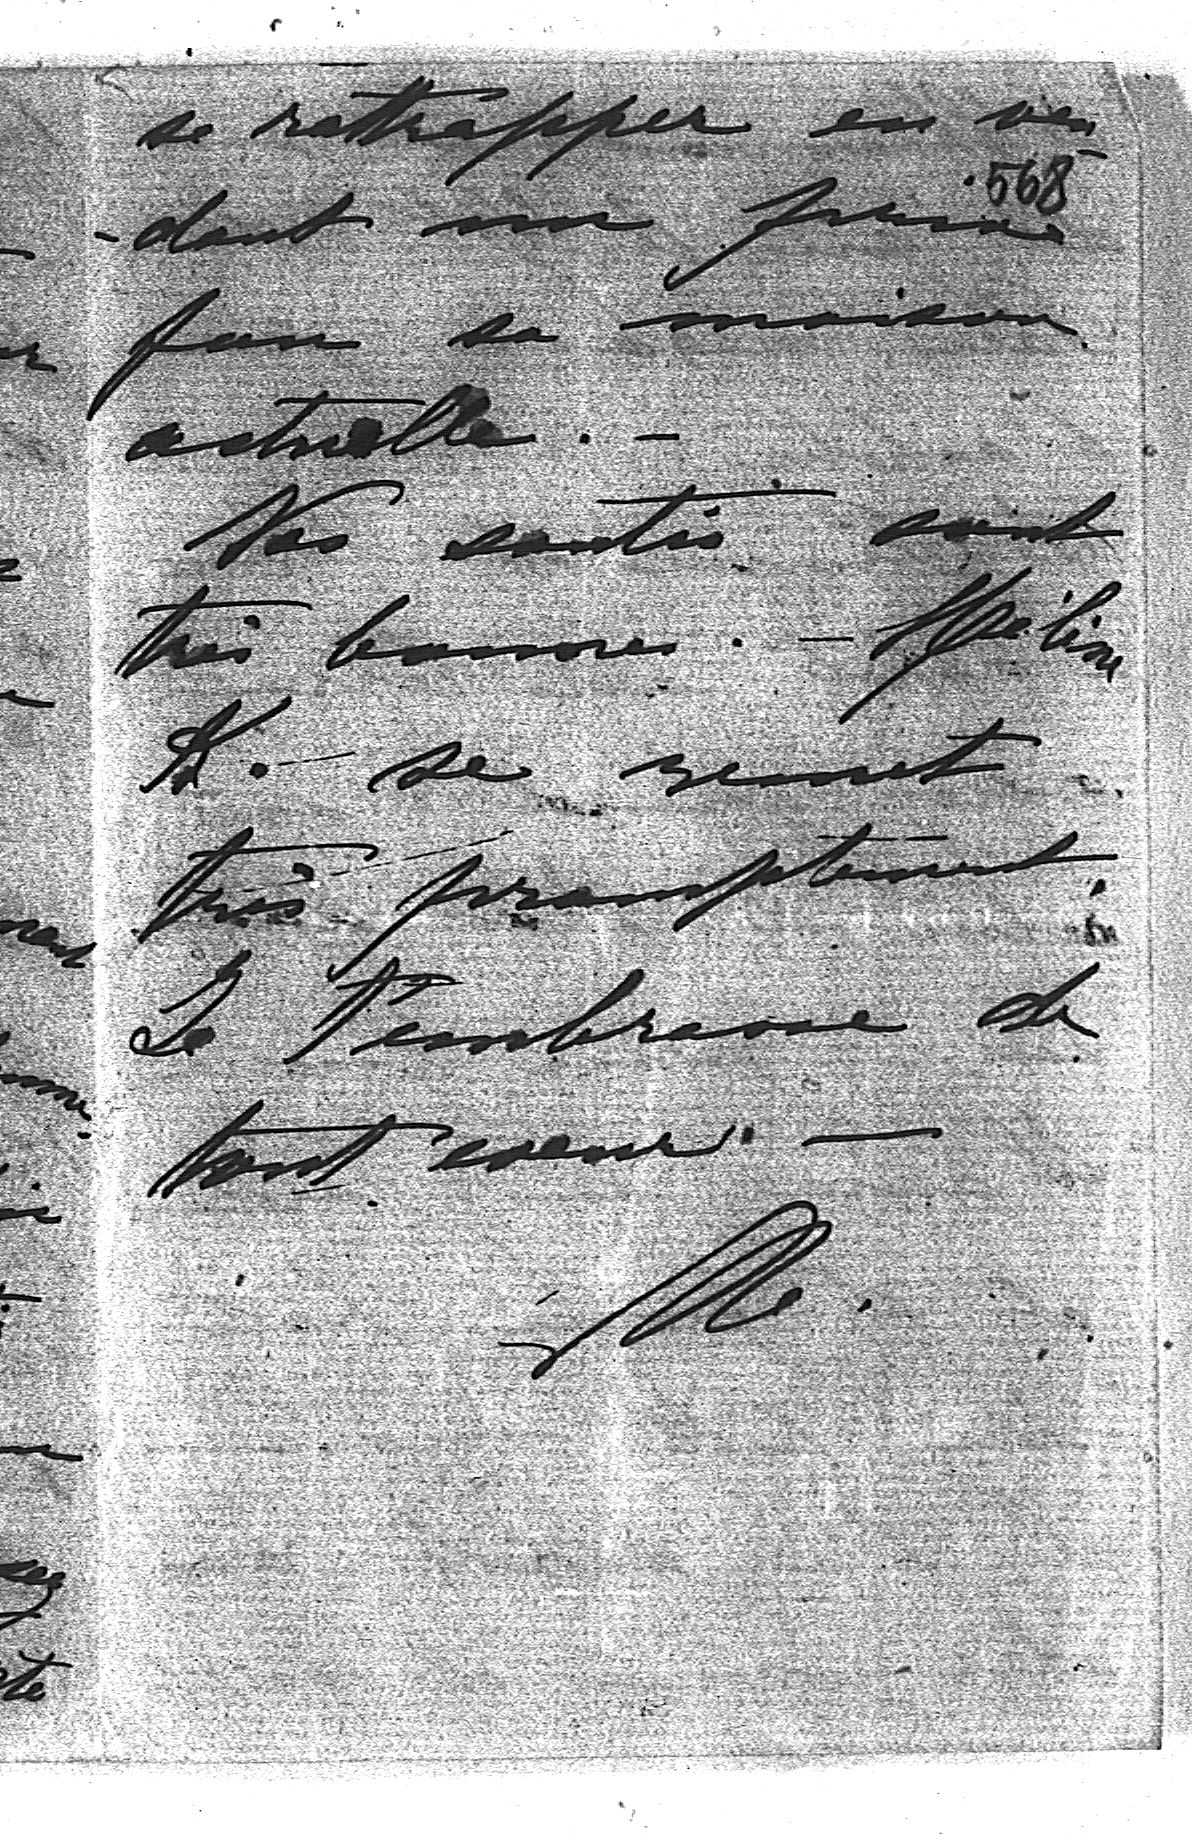 se rattrapper en ven
568
-dant une
sa maison
actuelle. —
Nos santés sont
très bonnes. — Hélène
K. — se remet
très promptement.
Je t'embrasse de
tout coeur. —